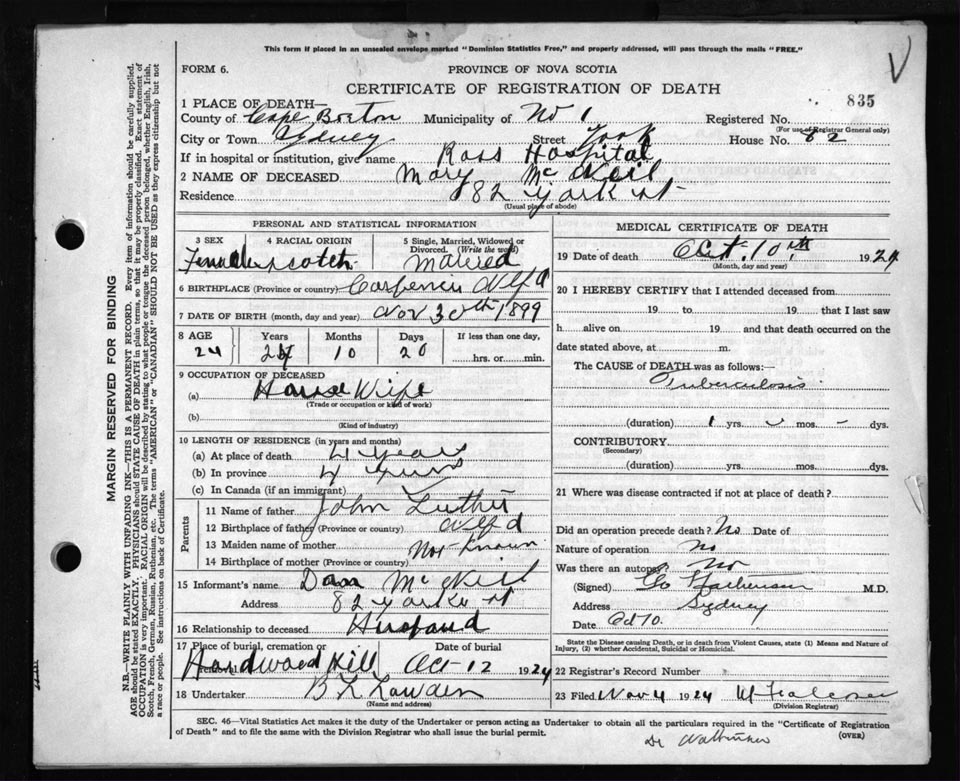 This form if placed in an unsealed envelope marked "Dominion Statistics Free," and properly addressed, will pass through the mails "FREE."
FORM 6.
PROVINCE OF NOVA SCOTIA
CERTIFICATE OF REGISTRATION OF DEATH
835
1 PLACE OF DEATH—
County of Cape Breton Municipality of No 1 Registered No.
(For use of Registrar General only)
City or Town Sydney Street York House No. 82
If in hospital or institution, give name Ross Hospital
2 NAME OF DECEASED Mary McKeil
Residence 82 York st
(Usual place of abode)
PERSONAL AND STATISTICAL INFORMATION
3 SEX 4 RACIAL ORIGIN 5 Single, Married, Widowed or Divorced. (Write the word)
Female Scotch Married
6 BIRTHPLACE (Province or country) Nlfd
7 DATE OF BIRTH (month, day and year) Nov 30th 1899
8 AGE Years Months Days If less than one day,
24 24 10 20 hrs. or min.
9 OCCUPATION OF DECEASED
(a) House Wife
(Trade or occupation or kind of work)
(b)
(Kind of industry)
10 LENGTH OF RESIDENCE (in years and months)
(a) At place of death 4 years
(b) In province 4 years
(c) In Canada (if an immigrant)
Parents
11 Name of father John Luther
12 Birthplace of father (Province or country) Nlfd
13 Maiden name of mother Not Known
14 Birthplace of mother (Province or country)
15 Informant's name Dan McKeil
Address 82 Yorke st
16 Relationship to deceased Husband
17 Place of burial, cremation or removal Date of burial
Hardwood Hill Oct 12 1924
18 Undertaker B L
(Name and address)
MEDICAL CERTIFICATE OF DEATH
19 Date of death Oct. 10th 1924
(Month, day and year)
20 I HEREBY CERTIFY that I attended deceased from
19 to 19 that I last saw
h alive on 19 and that death occurred on the
date stated above, at m.
The CAUSE of DEATH was as follows:
Tuberculosis
(duration) 1 yrs. mos. - dys.
CONTRIBUTORY
(Secondary)
(duration) yrs. mos. dys.
21 Where was disease contracted if not at place of death?
Did an operation precede death? No Date of
Nature of operation no
Was there an autopsy No
(Signed) M.D.
Address Sydney
Date Oct 10.
State the Disease causing Death, or in death from Violent Causes, state (1) Means and Nature of Injury, (2) whether Accidental, Suicidal or Homicidal.
22 Registrar's Record Number
23 Filed Nov 4 1924
(Division Registrar)
SEC. 46—Vital Statistics Act makes it the duty of the Undertaker or person acting as Undertaker to obtain all the particulars required in the "Certificate of Registration
of Death" and to file the same with the Division Registrar who shall issue the burial permit.
(OVER)
Dr
MARGIN RESERVED FOR BINDING
N.B.—WRITE PLAINLY WITH UNFADING INK—THIS IS A PERMANENT RECORD. Every item of information should be carefully supplied.
AGE should be stated EXACTLY. PHYSICIANS should STATE CAUSE OF DEATH in plain terms, so that it may be properly classified. Exact statement of
OCCUPATION is very important. RACIAL ORIGIN will be described by stating to what people or tongue the deceased person belonged, whether English, Irish,
Scotch, French, German, Russian, Ruthenian, etc. The terms "AMERICAN" or "CANADIAN" SHOULD NOT BE USED as they express citizenship but not
a race or people. See instructions on back of Certificate.